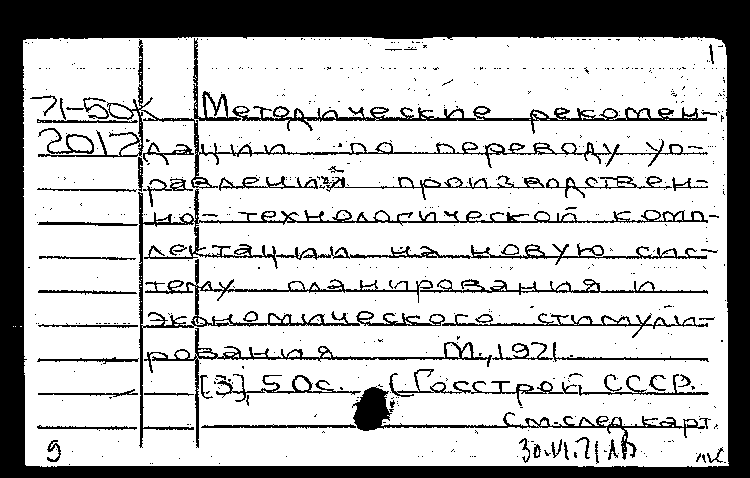 1
71-50К Методические рекомен-
2012 дации по переводу уп-
равлений производствен-
но-технологической комп-
лектации на новую сис-
тему планирования и
экономического стимули-
рования М., 1971.
[3], 50с. (Госстрой СССР.
См. след. карт.
9 30.VI.71